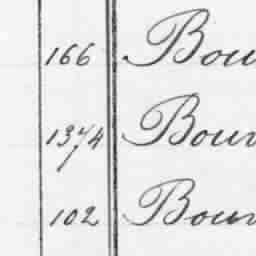 166 Bou
1374 Bour
102 Bour